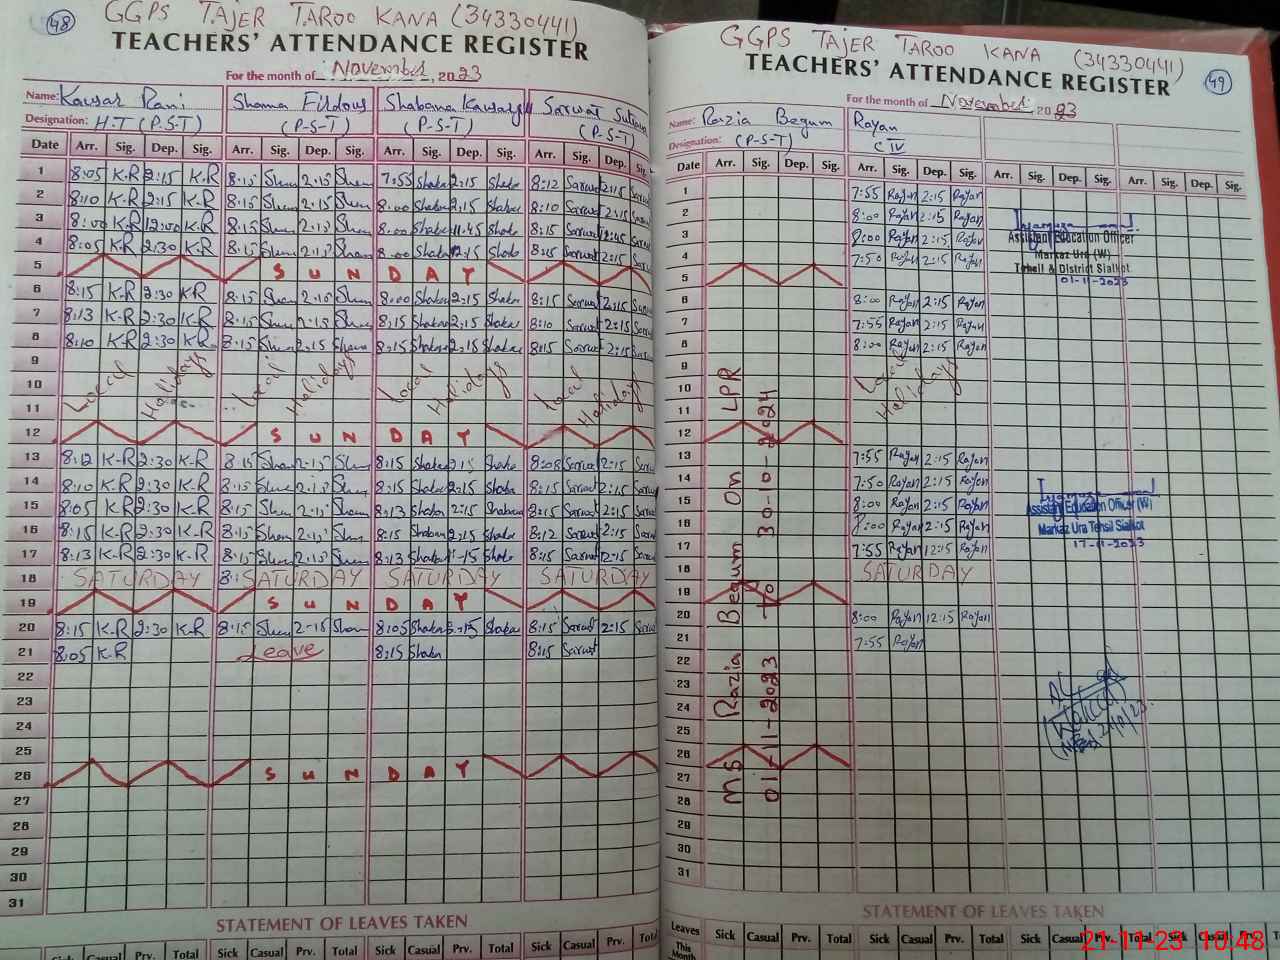 48
GGPS TAJER TAROO KANA (34330441)
TEACHERS' ATTENDANCE REGISTER
For the month of November, 2023
Name: Kausar Rani Shama Firdous Shabana Kausar Sarwat
Designation: H.T (P.S.T) (P-S-T) (P-S-T) (P-S-T)
Date Arr. Sig. Dep. Sig. Arr. Sig. Dep. Sig. Arr. Sig. Dep. Sig. Arr. Sig. Dep. Sig.
1 8:05 K-R 2:15 K-R 8:15 Sham 2:15 Sham 7:55 Shaba 2:15 Shaba 8:12 Sarwat 2:15
2 8:10 K-R 2:15 K-R 8:15 Sham 2:15 Sham 8:00 Shaba 2:15 Shaba 8:10 Sarwat 2:15
3 8:00 K-R 12:00 K-R 8:15 Sham 2:15 Sham 8:00 Shaba 11:45 Shaba 8:15 Sarwat
4 8:05 K-R 2:30 K-R 8:15 Sham 2:15 Sham 8:00 Shaba 8:15 Sarwat 2:15
5 SUNDAY
6 8:15 K-R 2:30 K-R 8:15 Sham 2:15 Sham 8:00 Shaba 2:15 Shaba 8:15 Sarwat 2:15
7 8:13 K-R 2:30 K-R 8:15 Sham 2:15 Sham 8:15 Shaba 2:15 Shaba 8:10 Sarwat 2:15
8 8:10 K-R 2:30 K-R 8:15 Sham 2:15 Sham 8:15 Shaba 2:15 Shaba 8:15 Sarwat 2:15
9
10 Local Holidays Local Holidays Local Holidays Local Holidays
11
12 SUNDAY
13 8:12 K-R 2:30 K-R 8:15 Sham 2:15 Sham 8:15 Shaba Shaba 8:08 Sarwat 2:15
14 8:10 K-R 2:30 K-R 8:15 Sham 2:15 Sham 8:15 Shaba 2:15 Shaba 8:15 Sarwat 2:15
15 8:05 K-R 2:30 K-R 8:15 Sham 2:15 Sham 8:13 Shaba 2:15 Shabana 8:15 Sarwat 2:15
16 8:15 K-R 2:30 K-R 8:15 Sham 2:15 Sham 8:15 Shaban 2:15 Shaba 8:12 Sarwat 2:15
17 8:13 K-R 2:30 K-R 8:15 Sham 2:15 Sham 8:13 Shaba Shaba 8:15 Sarwat 2:15
18 SATURDAY SATURDAY SATURDAY SATURDAY
19 SUNDAY
20 8:15 K-R 2:30 K-R 8:15 Sham 2:15 Sham 8:05 Shaba Shaba 8:15 Sarwat 2:15
21 8:05 K-R Leave 8:15 Shaba 8:15 Sarwat
22
23
24
25
26 SUNDAY
27
28
29
30
31
STATEMENT OF LEAVES TAKEN
Sick Casual Prv. Total Sick Casual Prv. Total Sick Casual Prv. Total Sick Casual Prv. Total
49
GGPS TAJER TAROO KANA (34330441)
TEACHERS' ATTENDANCE REGISTER
For the month of November 2023
Name: Razia Begum Rayan
Designation: (P-S-T) C IV
Date Arr. Sig. Dep. Sig. Arr. Sig. Dep. Sig. Arr. Sig. Dep. Sig. Arr. Sig. Dep. Sig.
1 7:55 Rayan 2:15 Rayan
2 8:00 Rayan 2:15 Rayan
3 8:00 Rayan 2:15 Rayan
4 7:50 Rayan 2:15 Rayan
5
6 8:00 Rayan 2:15 Rayan
7 7:55 Rayan 2:15 Rayan
8 8:00 Rayan 2:15 Rayan
9
10 Local Holidays
11
12
13 7:55 Rayan 2:15 Rayan
14 7:50 Rayan 2:15 Rayan
15 8:00 Rayan 2:15 Rayan
16 8:00 Rayan 2:15 Rayan
17 7:55 Rayan 12:15 Rayan
18 SATURDAY
19
20 8:00 Rayan 12:15 Rayan
21 7:55 Rayan
22
23
24
25
26
27
28
29
30
31
MS Razia Begum On LPR
01-11-2023 to 30-0-2024
Assistant Education Officer
Markaz Ura (W)
Tehsil & District Sialkot
01-11-2023
Assistant Education Officer (W)
Markaz Ura Tehsil Sialkot
17-11-2023
STATEMENT OF LEAVES TAKEN
Leaves Sick Casual Prv. Total Sick Casual Prv. Total Sick Casual Prv. Total Sick Casual Prv. Total
This Month
21-11-23 10:48